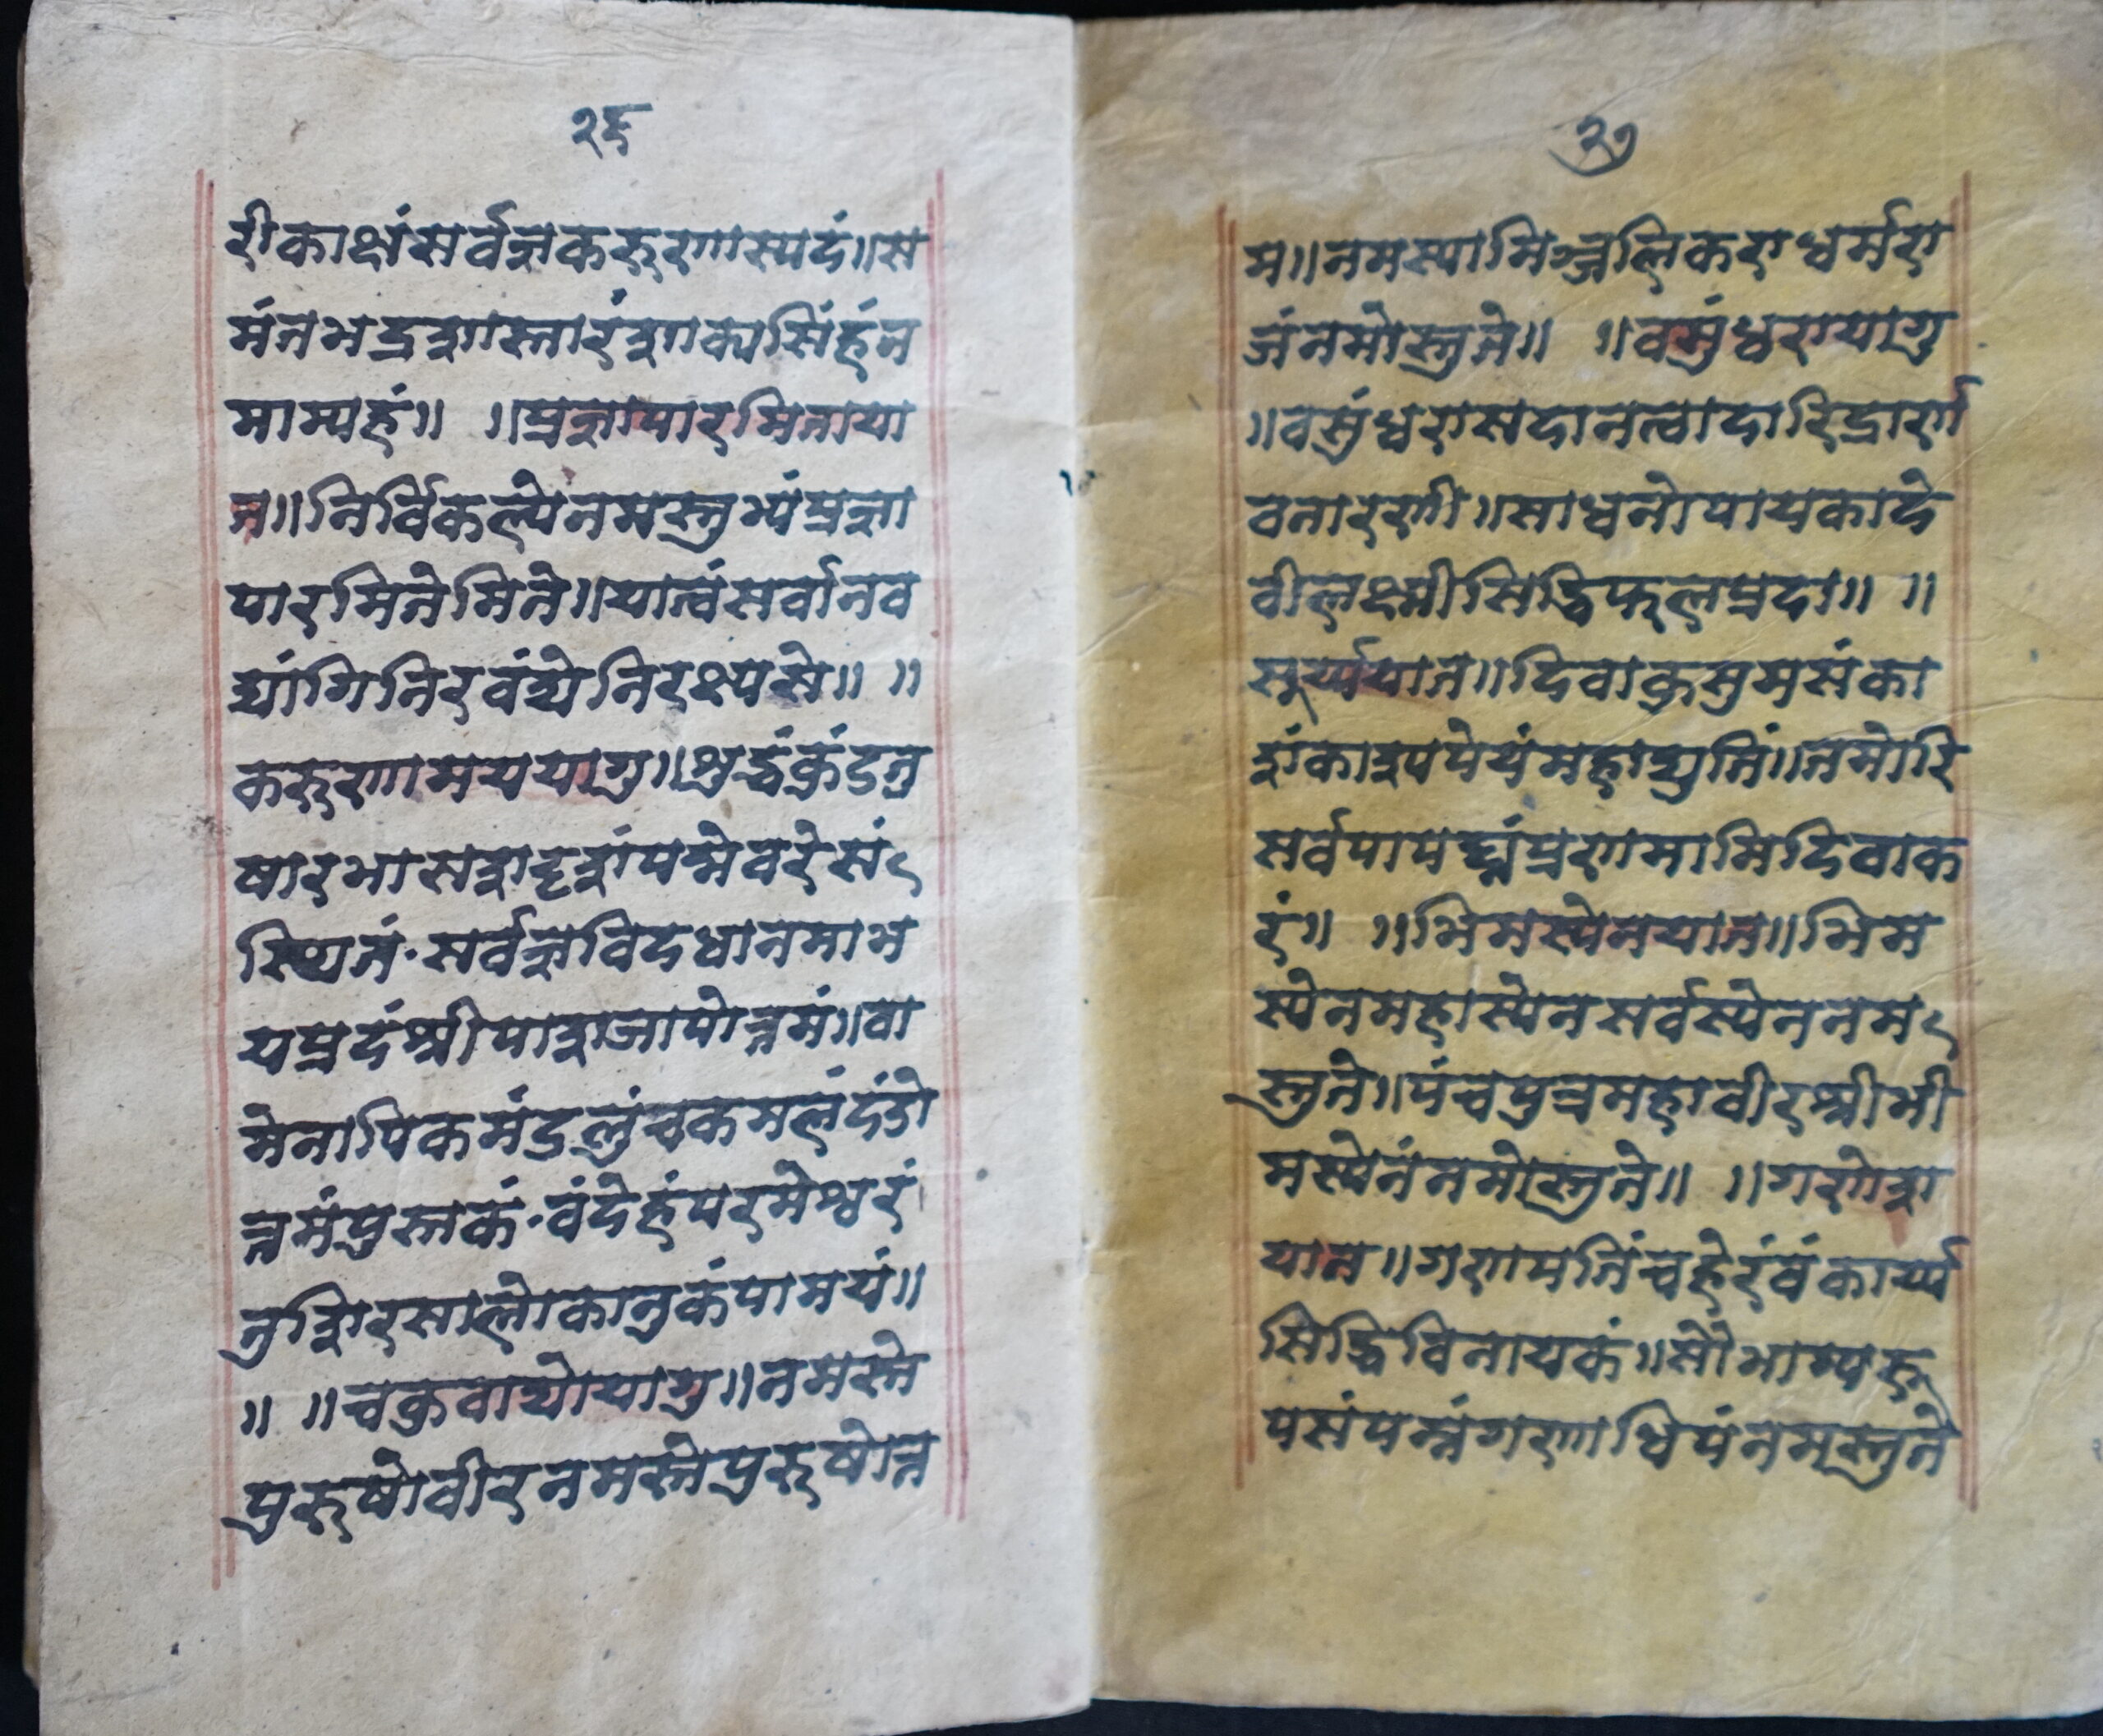 २६
रीकाक्षंसर्वज्ञकरुणास्पदं॥स
मंतभद्रशास्तारंशाक्यसिंहंन
माम्यहं॥ ॥प्रज्ञापारमिताया
त॥निर्विकल्पेनमस्तुभ्यंप्रज्ञा
पारमितेमिते॥यात्वंसर्वानव
द्यांगिनिरवंद्येनिरक्ष्यसे॥ ॥
करुणामययागु॥शुद्धंकुंदतु
षारभासशदृशांपद्मेवरेसं
स्थितं·सर्वज्ञविदधानमाभ
यप्रदंश्रीपाशजापोत्तमं॥वा
मेनापिकमंडलुंचकमलंदंडो
त्तमंपुस्तकं·वंदेहंपरमेश्वरं
नुशिरसालोकानुकंपामयं॥
॥ ॥चकुवाद्योयागु॥नमस्ते
पुरुषोवीरनमस्तेपुरुषोत्त
२७
म॥नमस्यामिञ्जलिकराधर्मरा
जंनमोस्तुते॥ ॥वसुंधरायागु
॥वसुंधरासदानत्वादारिद्रार्णा
वतारणी॥साधनोपायकादे
वीलक्ष्मीसिद्धिफलप्रदा॥ ॥
सूर्य्ययात॥दिवाकुसुमसंका
शंकाशपपेयंमहाद्युतिं॥तमोरि
सर्वपापघ्नंप्रणमामिदिवाक
रं॥ ॥भिमस्येनयात॥भिम
स्येनमहास्येनसर्वस्येननम
स्तुते॥पंचपुत्रमहावीरश्रीभी
मस्येनंनमोस्तुते॥ ॥गणेश
यात॥गणपतिंचहेरंवंकार्य्य
सिद्धिविनायकं॥सौभाग्यरू
पसंपन्नंगणाधिपंनमस्तुते